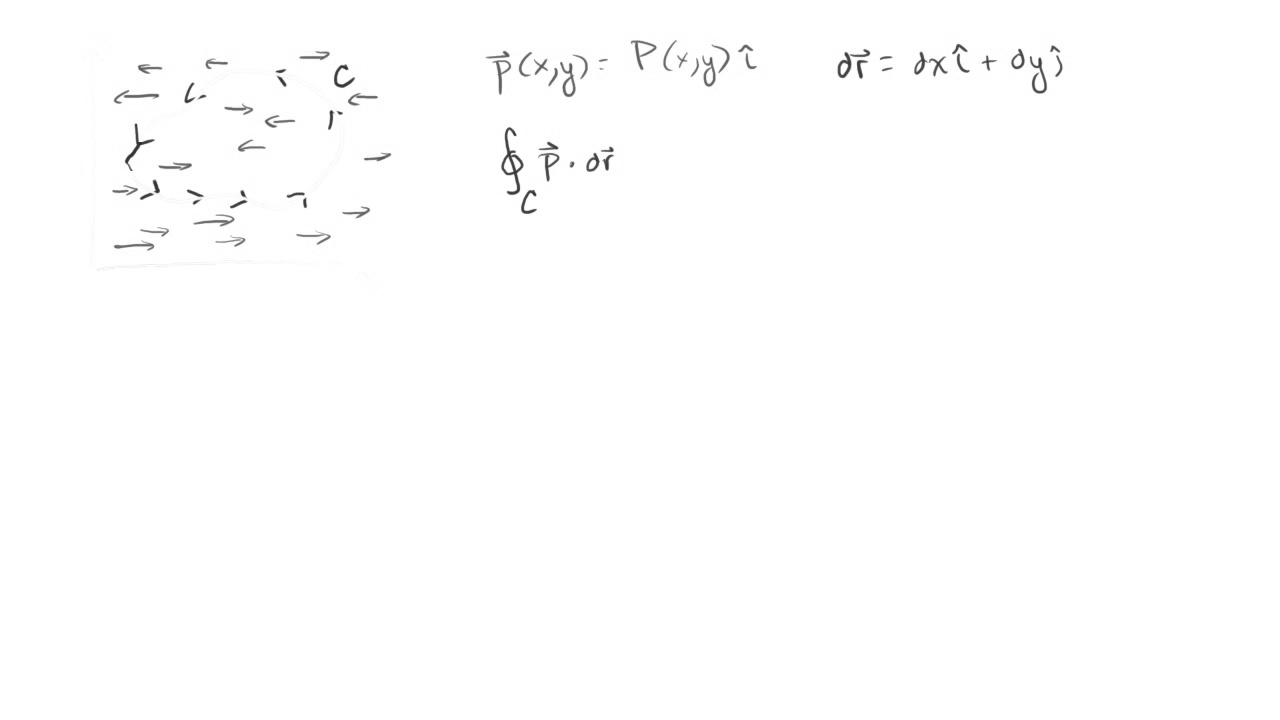 C
y
p⃗(x,y) = P(x,y) î    dr⃗ = dx î + dy ĵ
∮_C p⃗ · dr⃗